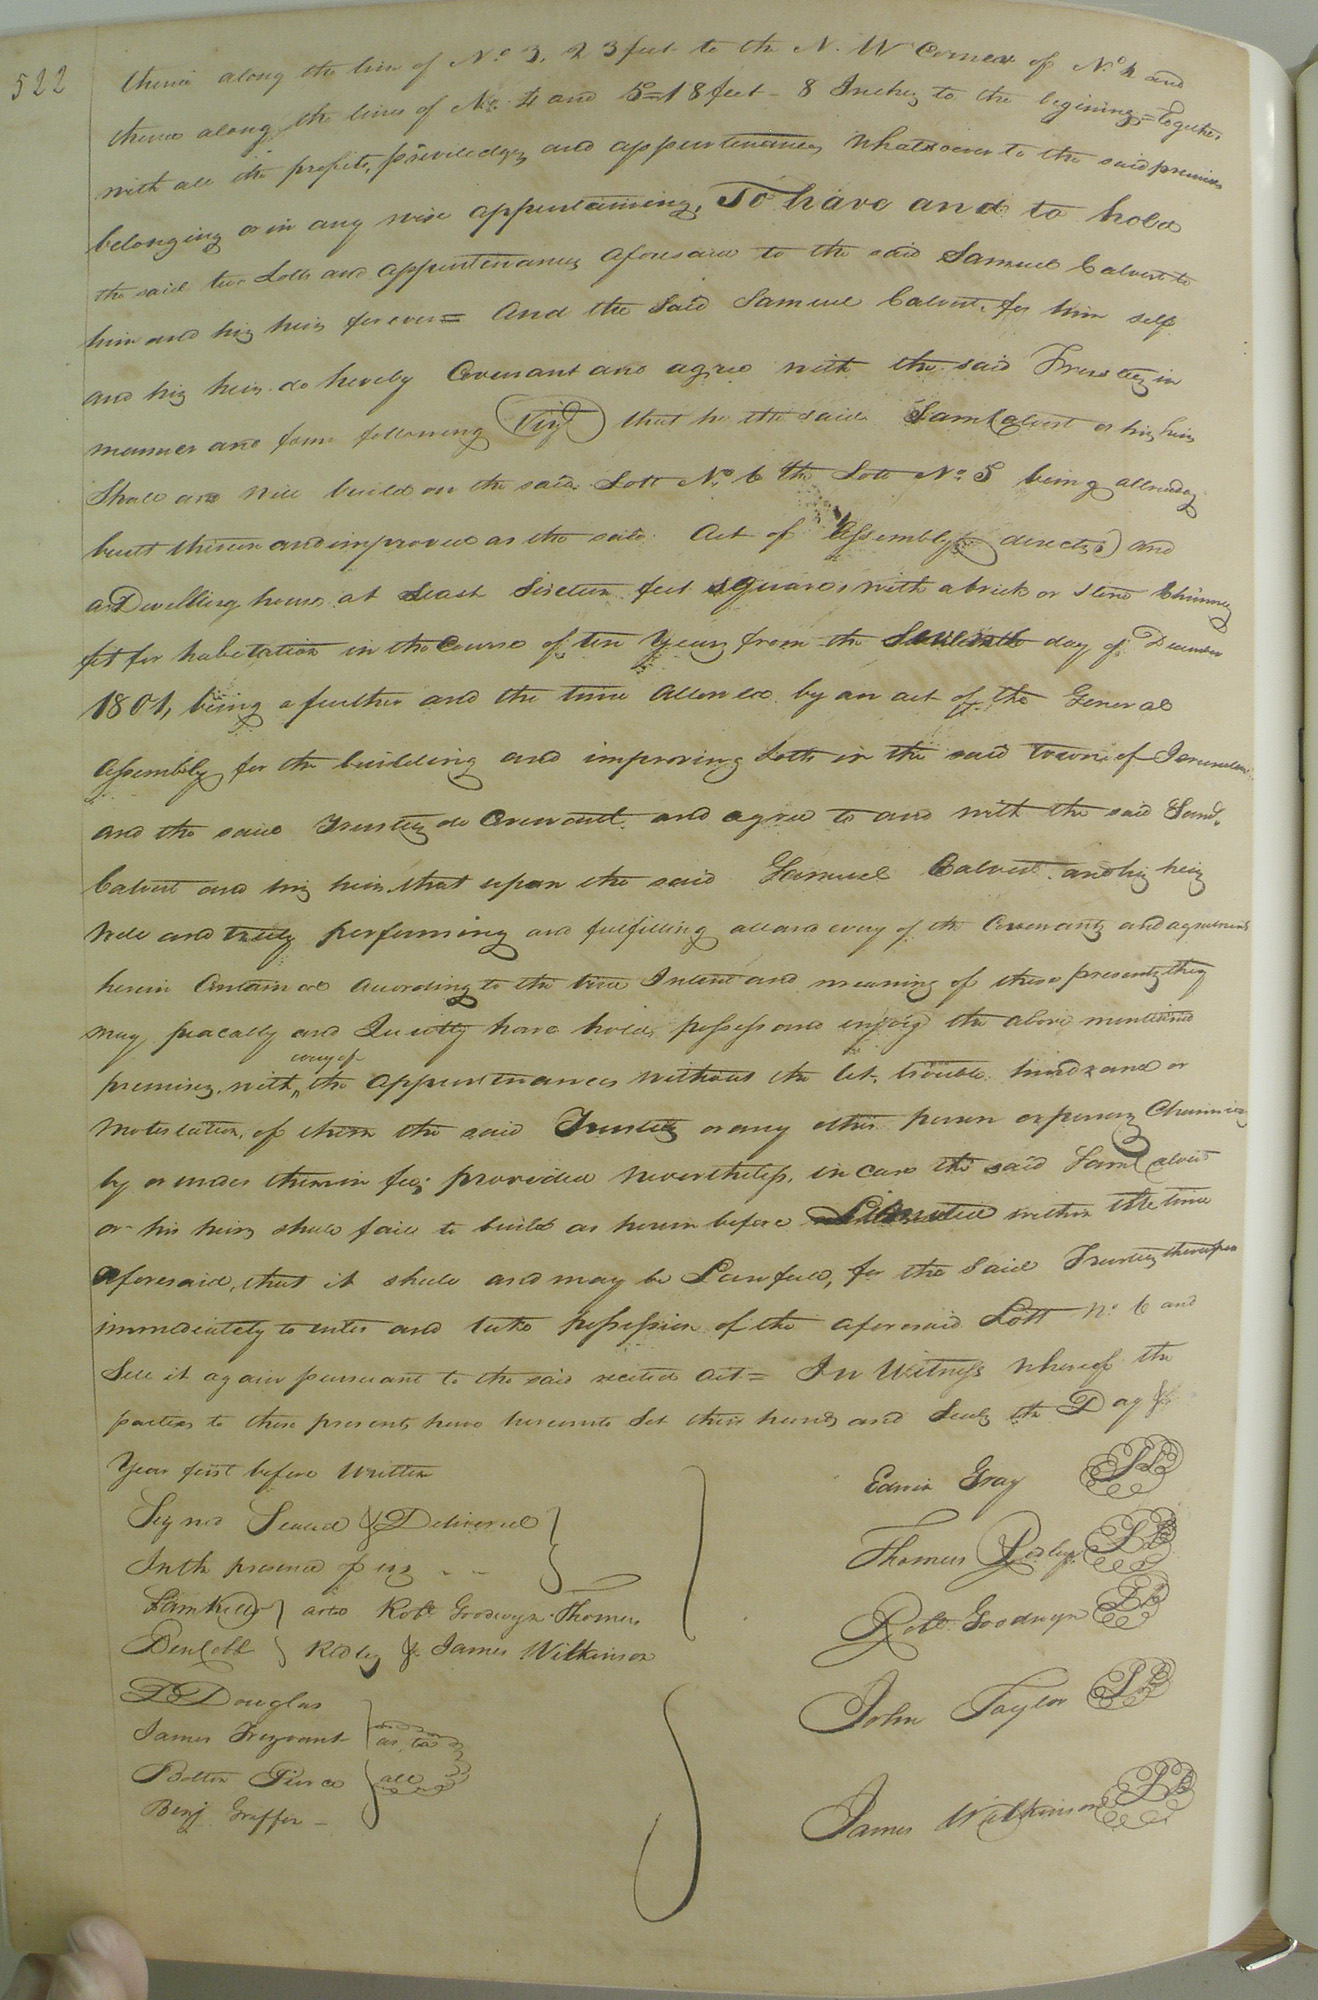 522
thence along the line of No. 3, 23 feet to the N. W Corner of No. 4 and
thence along the lines of No. 4 and 5 = 18 feet - 8 Inches to the begining = Together
with all the profits, priviledges and appurtenances Whatsoever to the said premises
belonging or in any wise appertaining, To have and to hold
the said two Lotts and appurtenances aforesaid to the said Samuel Calvert to
him and his heirs forever = And the Said Samuel Calvert, for him self
and his heirs do hereby Covenant and agree with the said Trustees in
manner and form following (Viz) that he the said Saml Calvert or his heirs
Shall and will build on the said Lott No. 6 the Lott No. 5 being allready
built thereon and improved as the said Act of Assembly directs) and
a Dwelling house at Least Sixteen feet Square with a brick or Stone Chimney
fit for habitation in the Course of ten Years from the day of December
1801, being a further and the time Allowed by an act of the General
Assembly for the building and improving Lotts in the said town of Jerusalem
and the said Trustees do Covenant and agree to and with the said Saml.
Calvert and his heirs that upon the said Samuel Calvert and his heirs
Well and truly performing and fulfilling all and every of the Covenants and agreements
herein Contained According to the true Intent and meaning of these presents they
may peacably and Quietly have hold, possess and enjoy the above mentioned
every of
premises, with the appurtenances without the let, trouble hindrance or
Molestation, of them the said Trustees or any other person or persons Claiming
by or under them in fee; provided Neverthelefs, in case the said Saml Calvert
or his heirs shall fail to build as herein before within the time
aforesaid, that it shall and may be Lawfull, for the Said Trustees thereupon
immediately to enter and take possession of the aforesaid Lott No. 6 and
Sell it again pursuant to the said recited Act = In Witness Whereof the
parties to these presents have hereunto Set their hands and Seals the Day &
Year first before Written
Edwin Gray LS
Signed Sealed & Delivered
Thomas Ridley LS
In the presence of us
Saml Kello as to Robt Goodwyn Thomas
Robt. Goodwyn LS
Ben Cobb Ridley & James Wilkinson
D Douglas
John Taylor LS
James Trezvant as to
Bolton Pierce all
Benj Griffin
James Wilkinson LS